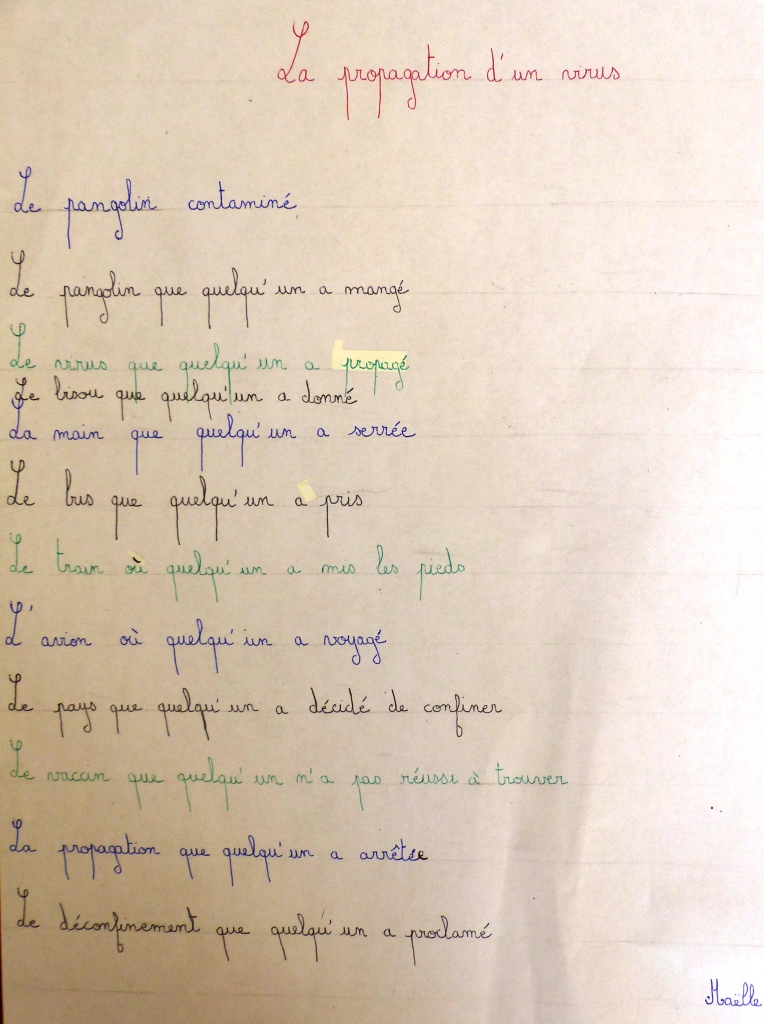 La propagation d'un virus
Le pangolin contaminé
Le pangolin que quelqu'un a mangé
Le virus que quelqu'un a propagé
Le bisou que quelqu'un a donné
La main que quelqu'un a serrée
Le bus que quelqu'un a pris
Le train où quelqu'un a mis les pieds
L'avion où quelqu'un a voyagé
Le pays que quelqu'un a décidé de confiner
Le vaccin que quelqu'un n'a pas réussi à trouver
La propagation que quelqu'un a arrêtée
Le déconfinement que quelqu'un a proclamé
Maëlle